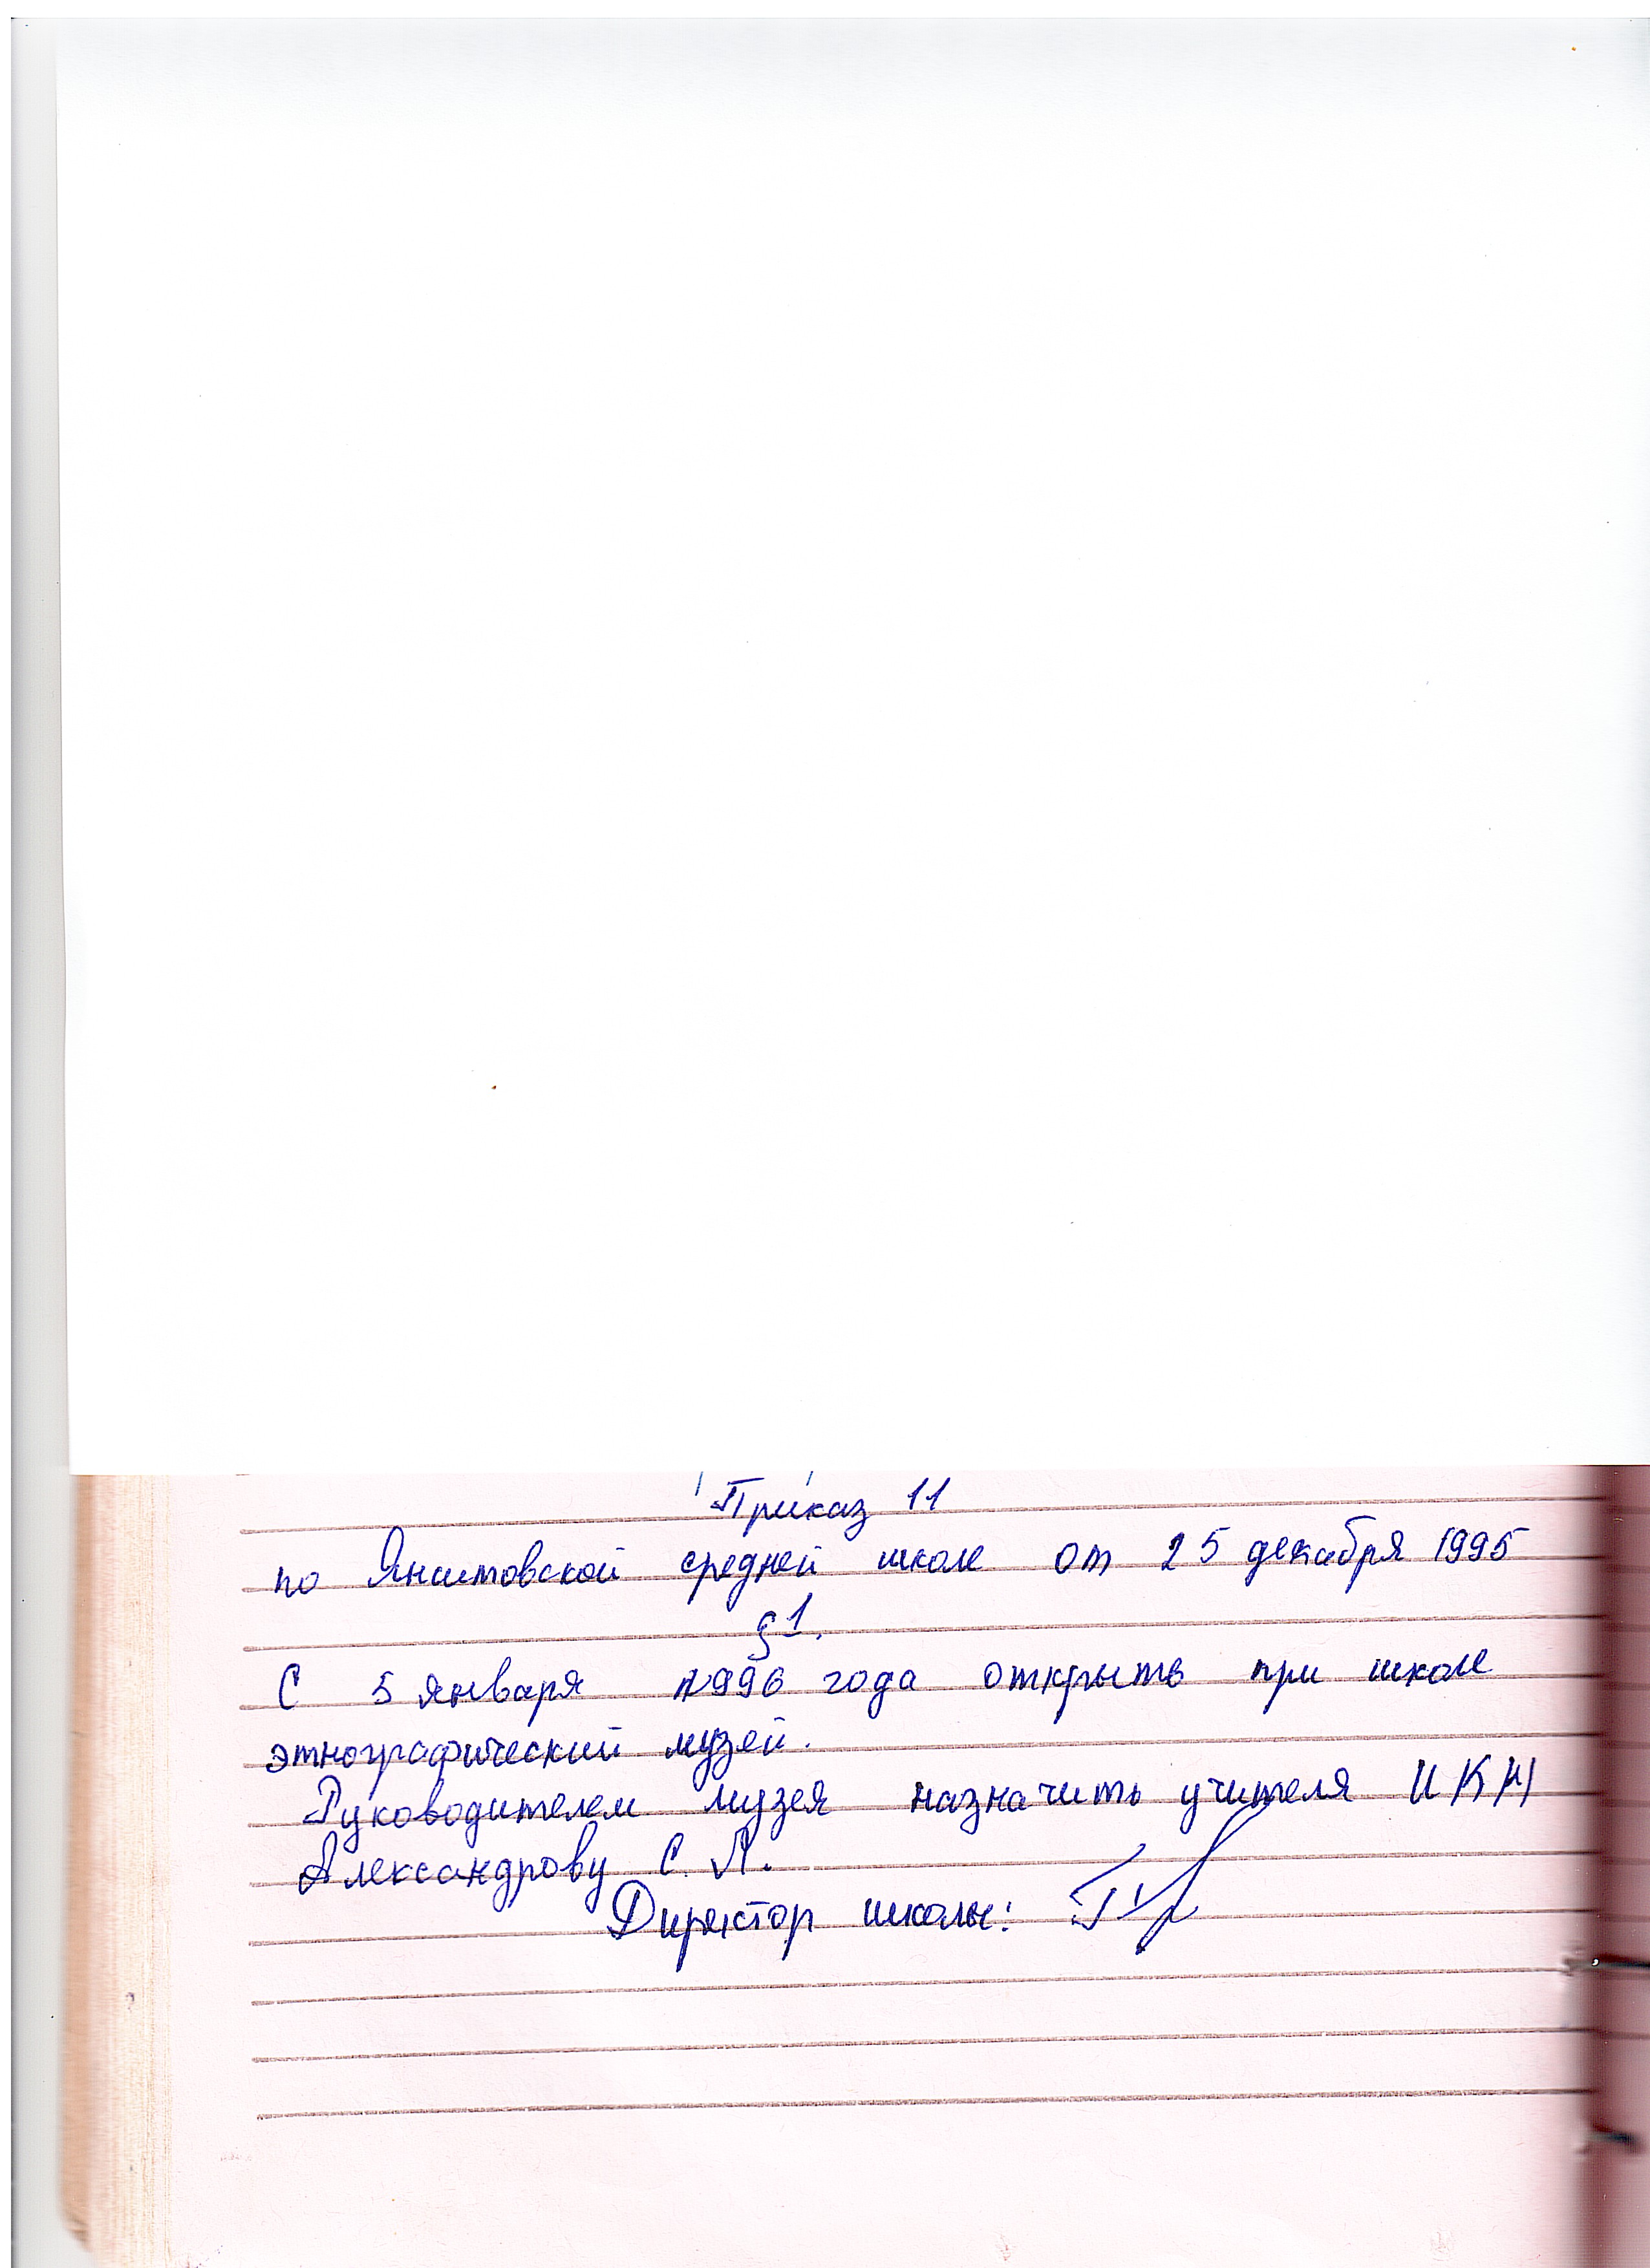 Приказ 11
по Яншитовской средней школе от 25 декабря 1995
§1.
С 5 января 1996 года открыть при школе
этнографический музей.
Руководителем музея назначить учителя ИКН
Александрову С. Л.
Директор школы: